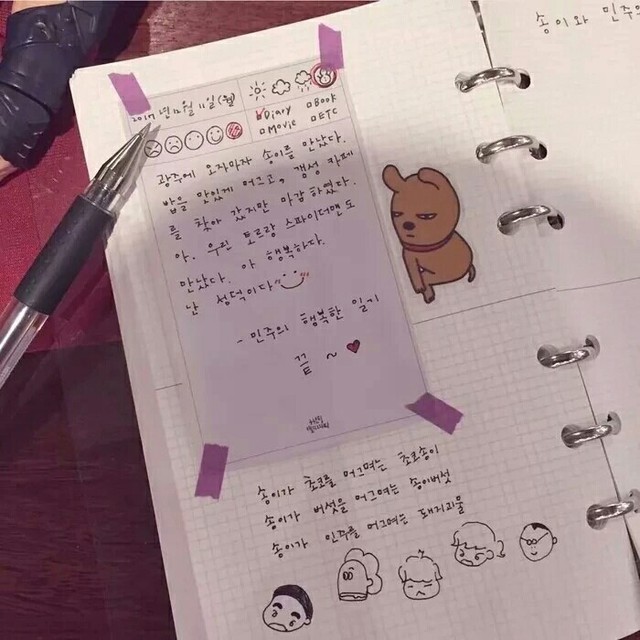 송이와 민주의
2017년 12월 11일 (월)
Diary Book
Movie ETC
광주에 오자마자 송이를 만났다.
밥을 맛있게 먹구고, 개성 카페
를 찾아 갔지만 마감하였다.
아. 우린 토르랑 스파이더맨도
만났다. 아 행복하다.
난 성덕이다
- 민주의 행복한 일기
끝 ~
송이가 초코를 먹으며는 초코송이
송이가 버섯을 먹으며는 송이버섯
송이가 민주를 먹으며는 돼지괴물